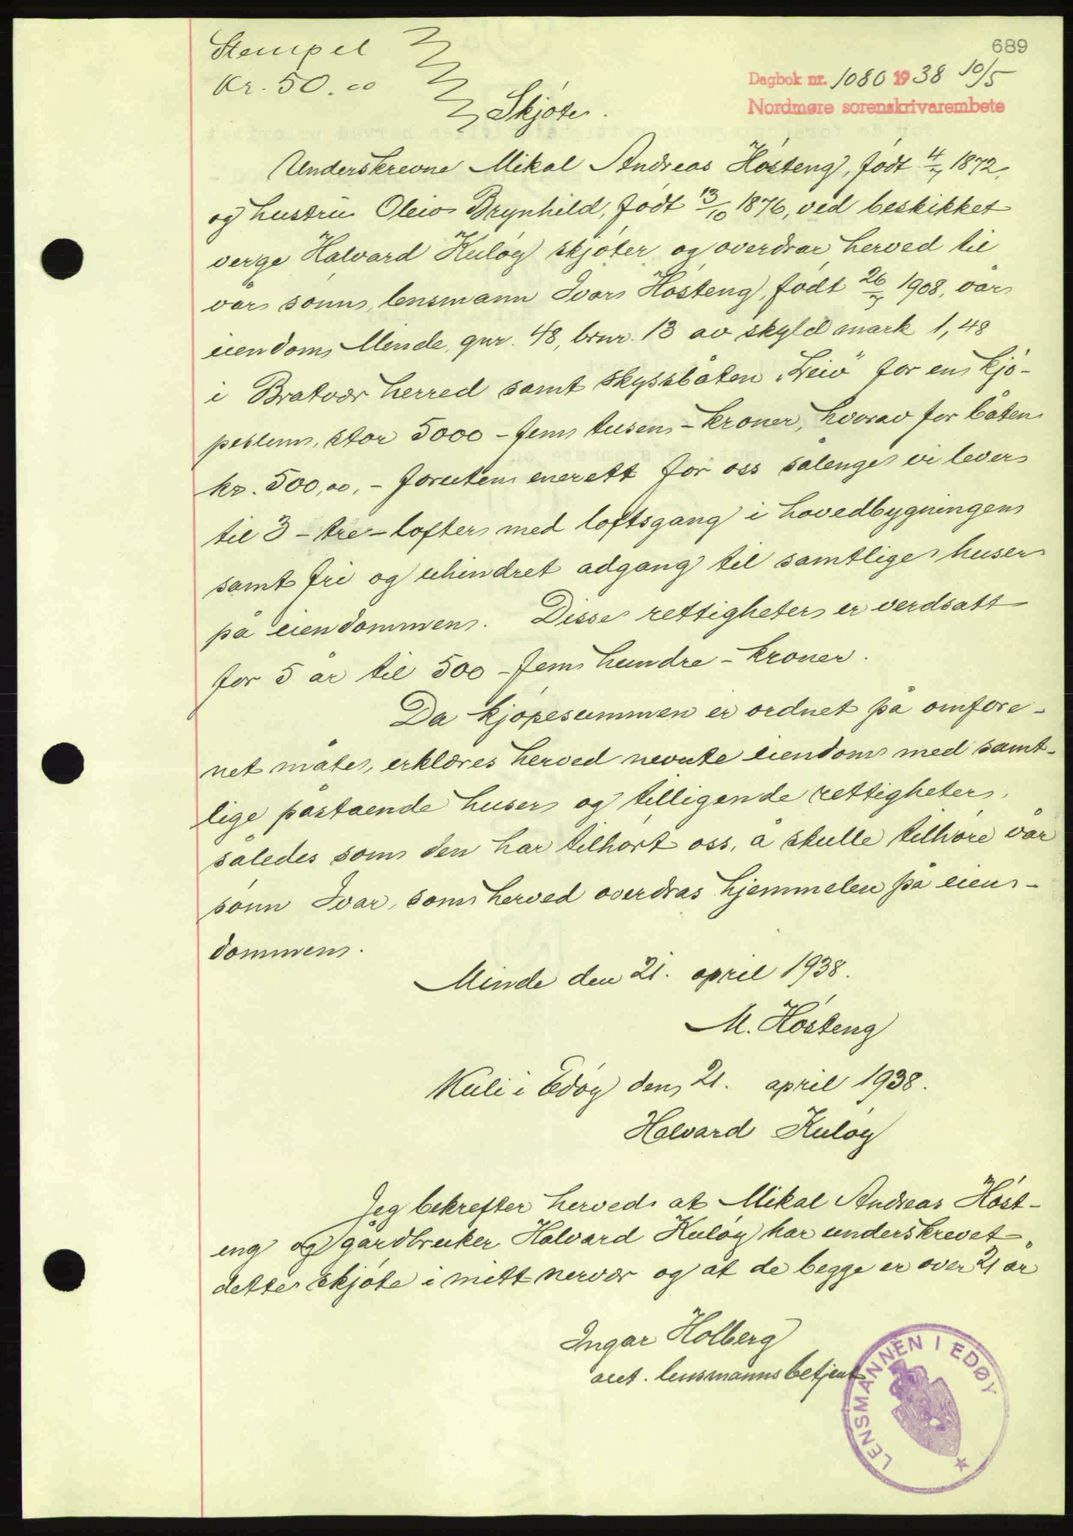 689
Stempel
Kr. 50.00
Dagbok nr. 1080 1938 10/5
Nordmøre sorenskrivarembete
Skjøte.
Underskrevne Mikal Andreas Høsteng, født 4/7 1872,
og hustru Oleia Brynhild, født 13/10 1876, ved beskikket
verge Halvard Kuløy skjøter og overdrar herved til
vår sønn, lensmann Ivar Høsteng, født 26/7 1908, vår
eiendom Minde, gnr. 48, brnr. 13 av skyld mark 1,48
i Bratvær herred samt skyssbåten „Leiv“ for en kjø-
pesum, stor 5000 - fem tusen - kroner, hvorav for båten
kr. 500,00, - foruten enerett for oss sålenge vi lever
til 3 - tre - lofter med loftsgang i hovedbygningen
samt fri og uhindret adgang til samtlige huser
på eiendommen. Disse rettigheter er verdsatt
for 5 år til 500 - fem hundre - kroner.
Da kjøpesummen er ordnet på omfore-
net måte, erklæres herved nevnte eiendom med samt-
lige påstaende huser og tilligende rettigheter,
således som den har tilhørt oss, å skulle tilhøre vår
sønn Ivar, som herved overdras hjemmelen på eien-
dommen.
Minde den 21. april 1938.
M. Høsteng
Kuli i Edøy den 21. april 1938.
Halvard Kuløy
Jeg bekrefter herved at Mikal Andreas Høst-
eng og gårdbruker Halvard Kuløy har underskrevet
dette skjøte i mitt nervær og at de begge er over 21 år.
Ingar Holberg
aut. lensmannsbetjent
LENSMANNEN I EDØY